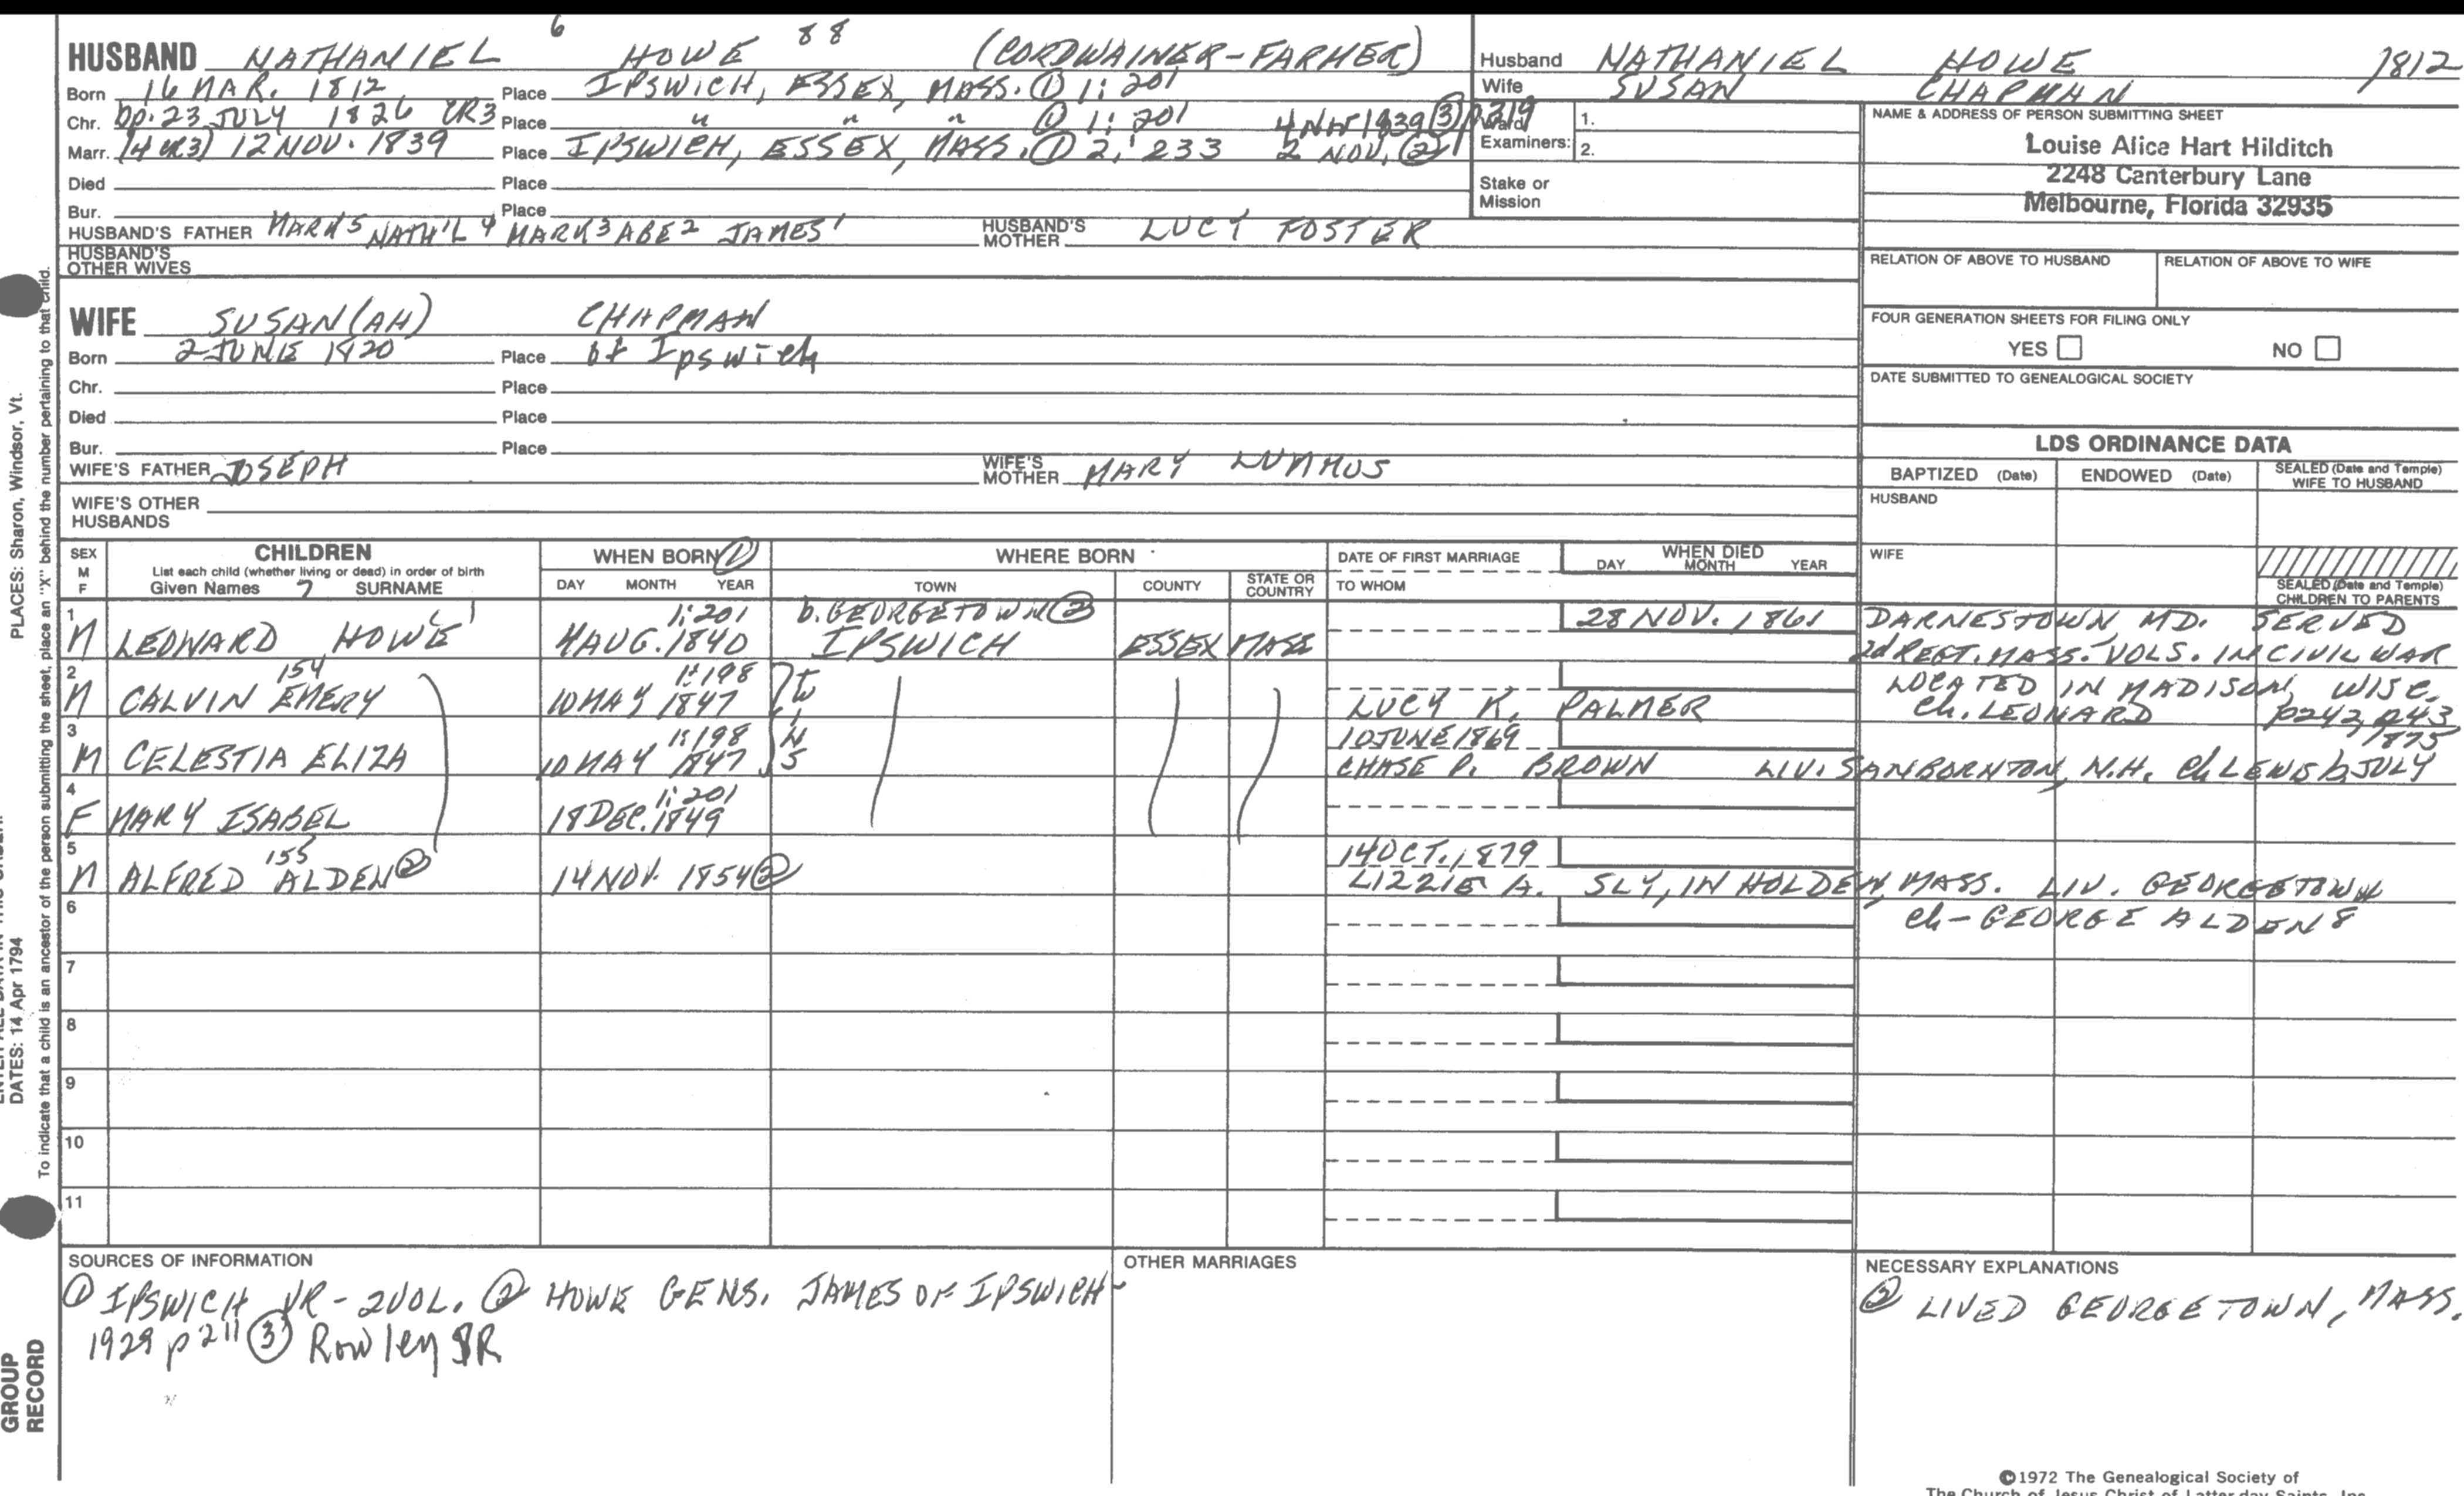 6 88
HUSBAND NATHANIEL HOWE (CORDWAINER-FARMER)
Born 16 MAR. 1812 Place IPSWICH, ESSEX, MASS. ① 1: 201
Chr. bp. 23 JULY 1826 CR3 Place " " " ① 1: 201 4 Nov 1839 ③ p319
Marr. (4 CR3) 12 NOV. 1839 Place IPSWICH, ESSEX, MASS. ① 2: 233 2 NOV. ②
Died Place
Bur. Place
HUSBAND'S FATHER MARK5 NATH'L4 MARK3 ABE2 JAMES1 HUSBAND'S MOTHER LUCY FOSTER
HUSBAND'S OTHER WIVES
WIFE SUSAN(AH) CHAPMAN
Born 2 JUNE 1820 Place of Ipswich
Chr. Place
Died Place
Bur. Place
WIFE'S FATHER JOSEPH WIFE'S MOTHER MARY LUMMUS
WIFE'S OTHER HUSBANDS
Husband NATHANIEL HOWE 1812
Wife SUSAN CHAPMAN
Ward 1.
Examiners: 2.
Stake or Mission
NAME & ADDRESS OF PERSON SUBMITTING SHEET
Louise Alice Hart Hilditch
2248 Canterbury Lane
Melbourne, Florida 32935
RELATION OF ABOVE TO HUSBAND RELATION OF ABOVE TO WIFE
FOUR GENERATION SHEETS FOR FILING ONLY
YES NO
DATE SUBMITTED TO GENEALOGICAL SOCIETY
LDS ORDINANCE DATA
BAPTIZED (Date) ENDOWED (Date) SEALED (Date and Temple) WIFE TO HUSBAND
HUSBAND
WIFE
SEALED (Date and Temple) CHILDREN TO PARENTS
SEX M F
CHILDREN
List each child (whether living or dead) in order of birth
Given Names 7 SURNAME
WHEN BORN ①
DAY MONTH YEAR
WHERE BORN
TOWN COUNTY STATE OR COUNTRY
DATE OF FIRST MARRIAGE
TO WHOM
WHEN DIED
DAY MONTH YEAR
1 1: 201 b. GEORGETOWN ② 28 NOV. 1861 DARNESTOWN MD. SERVED
M LEONARD HOWE 4 AUG. 1840 IPSWICH ESSEX MASS 2d REGT. MASS. VOLS. IN CIVIL WAR
2 154 1: 198 LOCATED IN MADISON, WISC.
M CALVIN EMERY 10 MAY 1847 LUCY K. PALMER Ch. LEONARD p242, 243
3 1: 198 10 JUNE 1869 1875
M CELESTIA ELIZA 10 MAY 1847 CHASE P. BROWN LIV. SANBORNTON, N.H. Ch LEWIS b. JULY
4 1: 201
F MARY ISABEL 18 DEC. 1849
5 155 14 OCT. 1879
M ALFRED ALDEN ② 14 NOV. 1854 ② LIZZIE A. SLY, IN HOLDEN, MASS. LIV. GEORGETOWN
6 Ch - GEORGE ALDEN 8
7
8
9
10
11
SOURCES OF INFORMATION
① IPSWICH VR - 2 VOL. ② HOWE GENS. JAMES OF IPSWICH
1929 p 211 ③ Rowley VR
OTHER MARRIAGES
NECESSARY EXPLANATIONS
② LIVED GEORGETOWN, MASS.
©1972 The Genealogical Society of
The Church of Jesus Christ of Latter-day Saints, Inc.
PLACES: Sharon, Windsor, Vt.
DATES: 14 Apr 1794
To indicate that a child is an ancestor of the person submitting the sheet, place an "X" behind the number pertaining to that child.
GROUP
RECORD